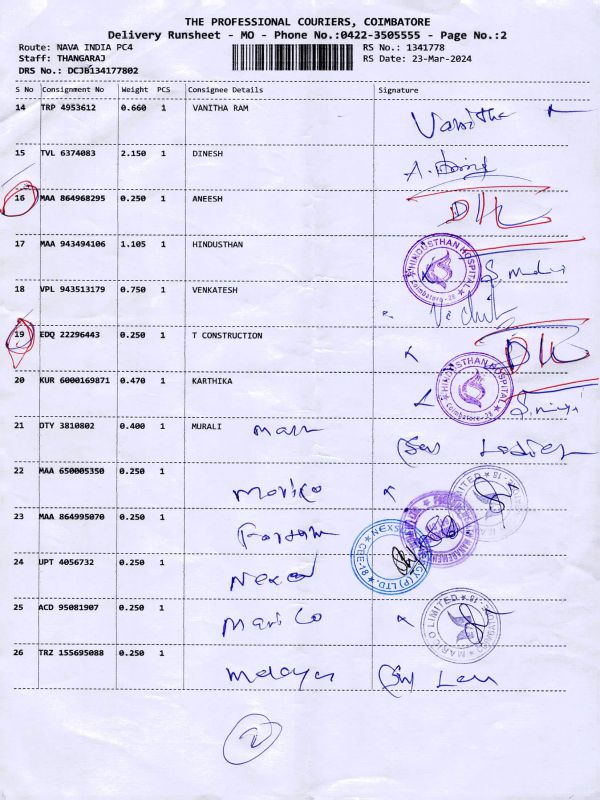 THE PROFESSIONAL COURIERS, COIMBATORE
Delivery Runsheet - MO - Phone No.:0422-3505555 - Page No.:2
Route: NAVA INDIA PC4 RS No.: 1341778
Staff: THANGARAJ RS Date: 23-Mar-2024
DRS No.: DCJB134177802
S No Consignment No Weight PCS Consignee Details Signature
14 TRP 4953612 0.660 1 VANITHA RAM Vanitha
15 TVL 6374083 2.150 1 DINESH
16 MAA 864968295 0.250 1 ANEESH
17 MAA 943494106 1.105 1 HINDUSTHAN
HINDUSTHAN HOSPITAL
Coimbatore-28
18 VPL 943513179 0.750 1 VENKATESH
19 EDQ 22296443 0.250 1 T CONSTRUCTION
20 KUR 6000169871 0.470 1 KARTHIKA
HINDUSTHAN HOSPITAL
Coimbatore-28
21 DTY 3810802 0.400 1 MURALI
22 MAA 650005350 0.250 1 Marico
LIMITED
23 MAA 864995070 0.250 1
24 UPT 4056732 0.250 1
25 ACD 95081907 0.250 1 Marico
MARICO LIMITED
26 TRZ 155695088 0.250 1
2